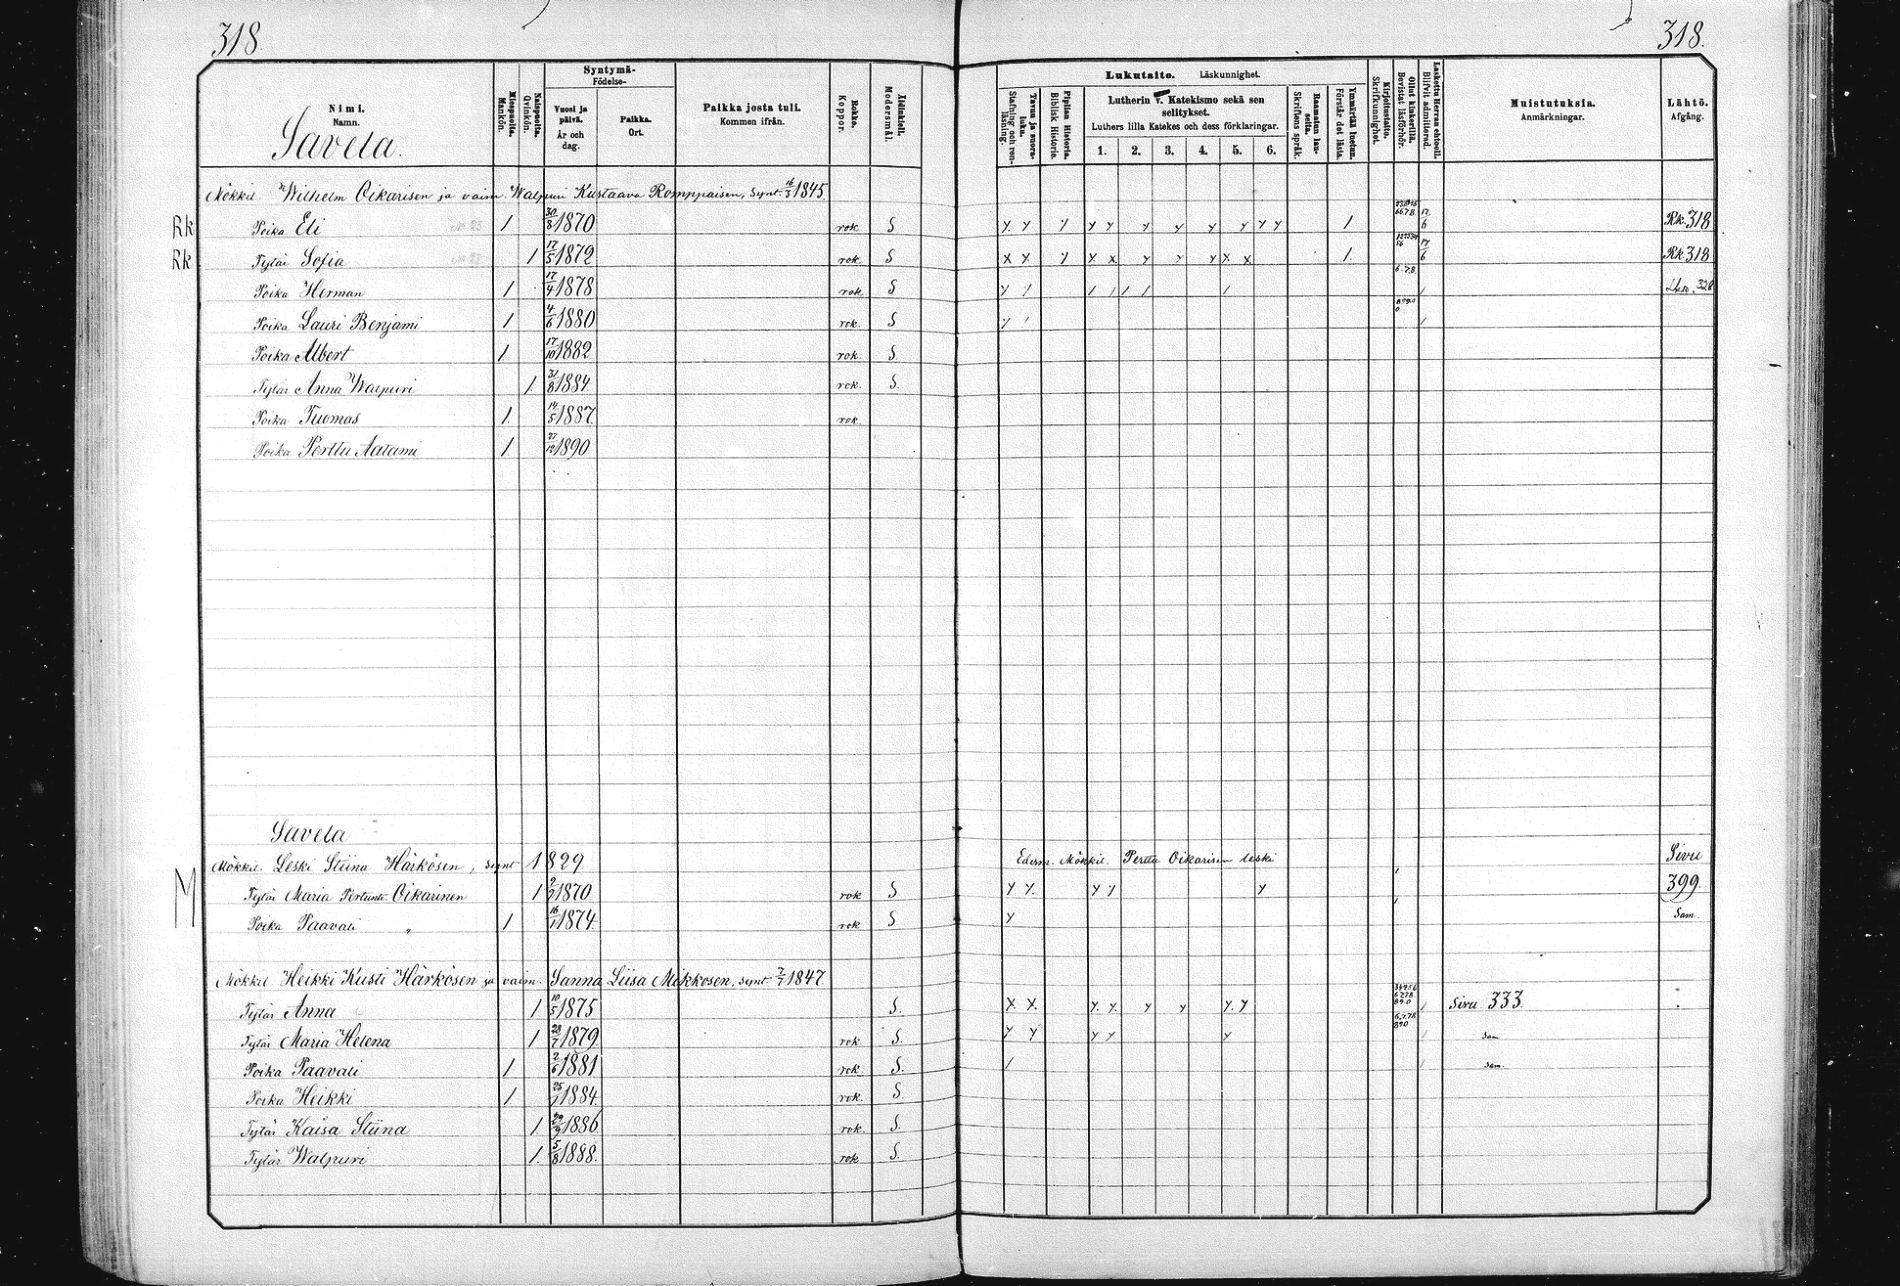 318
318.
Nimi. Namn.
Savela.
Miespuolia. Mankön.
Naispuolia. Qvinkön.
Syntymä- Födelse-
Vuosi ja päivä. År och dag.
Paikka. Ort.
Paikka josta tuli. Kommen ifrån.
Rokko. Koppor.
Äidinkieli. Modersmål.
Lukutaito. Läskunnighet.
Tavaa ja suora- luku. Stafning och ren- läsning.
Piplian Historia. Biblisk Historia.
Lutherin v. Katekismo sekä sen selitykset.
Luthers lilla Katekes och dess förklaringar.
1. 2. 3. 4. 5. 6.
Raamatun lau- seita. Skriftens språk.
Ymmärtää luetun. Förstår det lästa.
Kirjoitustaito. Skrifkunnighet.
Ollut kinkerillä. Bevistat läsförhör.
Laskettu Herran ehtooll. Blifvit admitterad.
Muistutuksia. Anmärkningar.
Lähtö. Afgång.
Mökkil. Wilhelm Oikarisen ja vaim. Walpuri Kustaava Romppaisen, synt. 16/3 1845.
Rk Poika Eli 1 30/8 1870 rok. S y y y y y y y y y y y 1 12/6 Rk. 318
Rk Tytär Sofia 1 17/5 1872 rok. S x x y x y y y x x 1 17/6 Rk. 318
Poika Herman 1 17/4 1878 rok. S y 1 1 1 1 1 1 6.7.8. 328
Poika Lauri Benjami 1 4/6 1880 rok. S y 1
Poika Albert 1 17/10 1882 rok. S.
Tytär Anna Walpuri 1 31/8 1884. rok. S.
Poika Tuomas 1. 14/5 1887. rok.
Poika Perttu Aatami 1 27/12 1890
Savela
Mökkil. Leski Stiina Härkösen, synt 1829 Edesm. Mökkil. Perttu Oikarisen leski Sivu
M Tytär Maria Oikarinen 1 2/7 1870 rok S y y. y y y 399.
Poika Paavali " 1 16/1 1874. rok S y Sam.
Mökkil Heikki Kusti Härkösen ja vaim. Sanna Liisa Mikkosen, synt. 7/7 1847
Tytär Anna 1 10/5 1875 S. x x. y. y. y y y. y 34956 6278 890 Sivu 333.
Tytär Maria Helena 1 28/7 1879 rok S. y y y y y 6.7.78 890 Sam
Poika Paavali 1 2/6 1881 rok S. 1 sam.
Poika Heikki 1 25/1 1884. rok. S
Tytär Kaisa Stiina 1 1886 rok. S.
Tytär Walpuri 1. 5/8 1888. rok S.